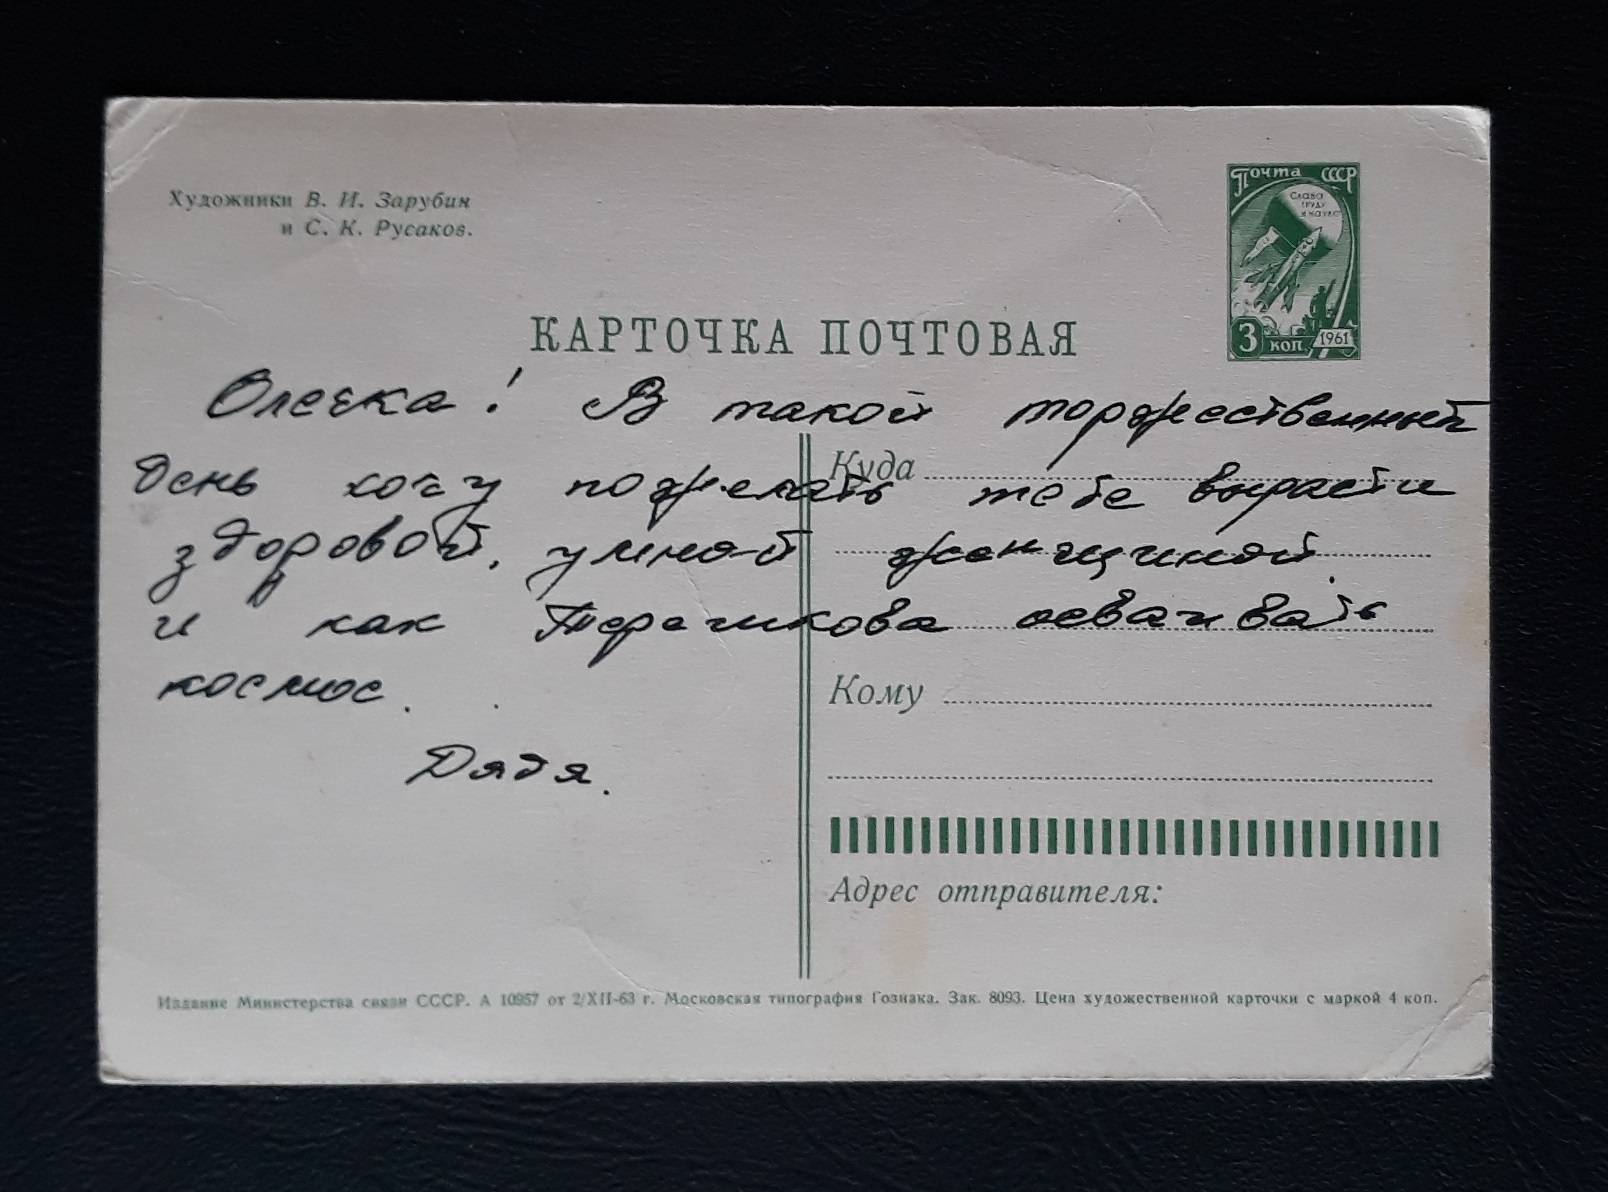 Художники В. И. Зарубин
и С. К. Русаков.
Почта СССР
Слава
труду
и науке
3 коп. 1961
КАРТОЧКА ПОЧТОВАЯ
Олечка! В такой торжественный
день хочу пожелать тебе вырасти
здоровой, умной женщиной.
и как Терешкова осваивать
космос.
Дядя.
Куда
Кому
Адрес отправителя:
Издание Министерства связи СССР. А 10957 от 2/XII-63 г. Московская типография Гознака. Зак. 8093. Цена художественной карточки с маркой 4 коп.